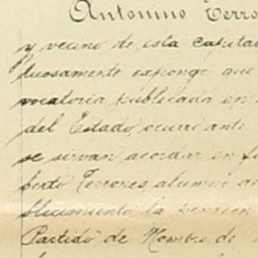 Antonino Terro
y vecino de esta capital
tuosamente expongo que
vocatoria publicada en
del Estado, ocurro ante
se sirvan acordar en fa
berto Terrones, alumno de
blecimiento la pension
Partido de Nombre de